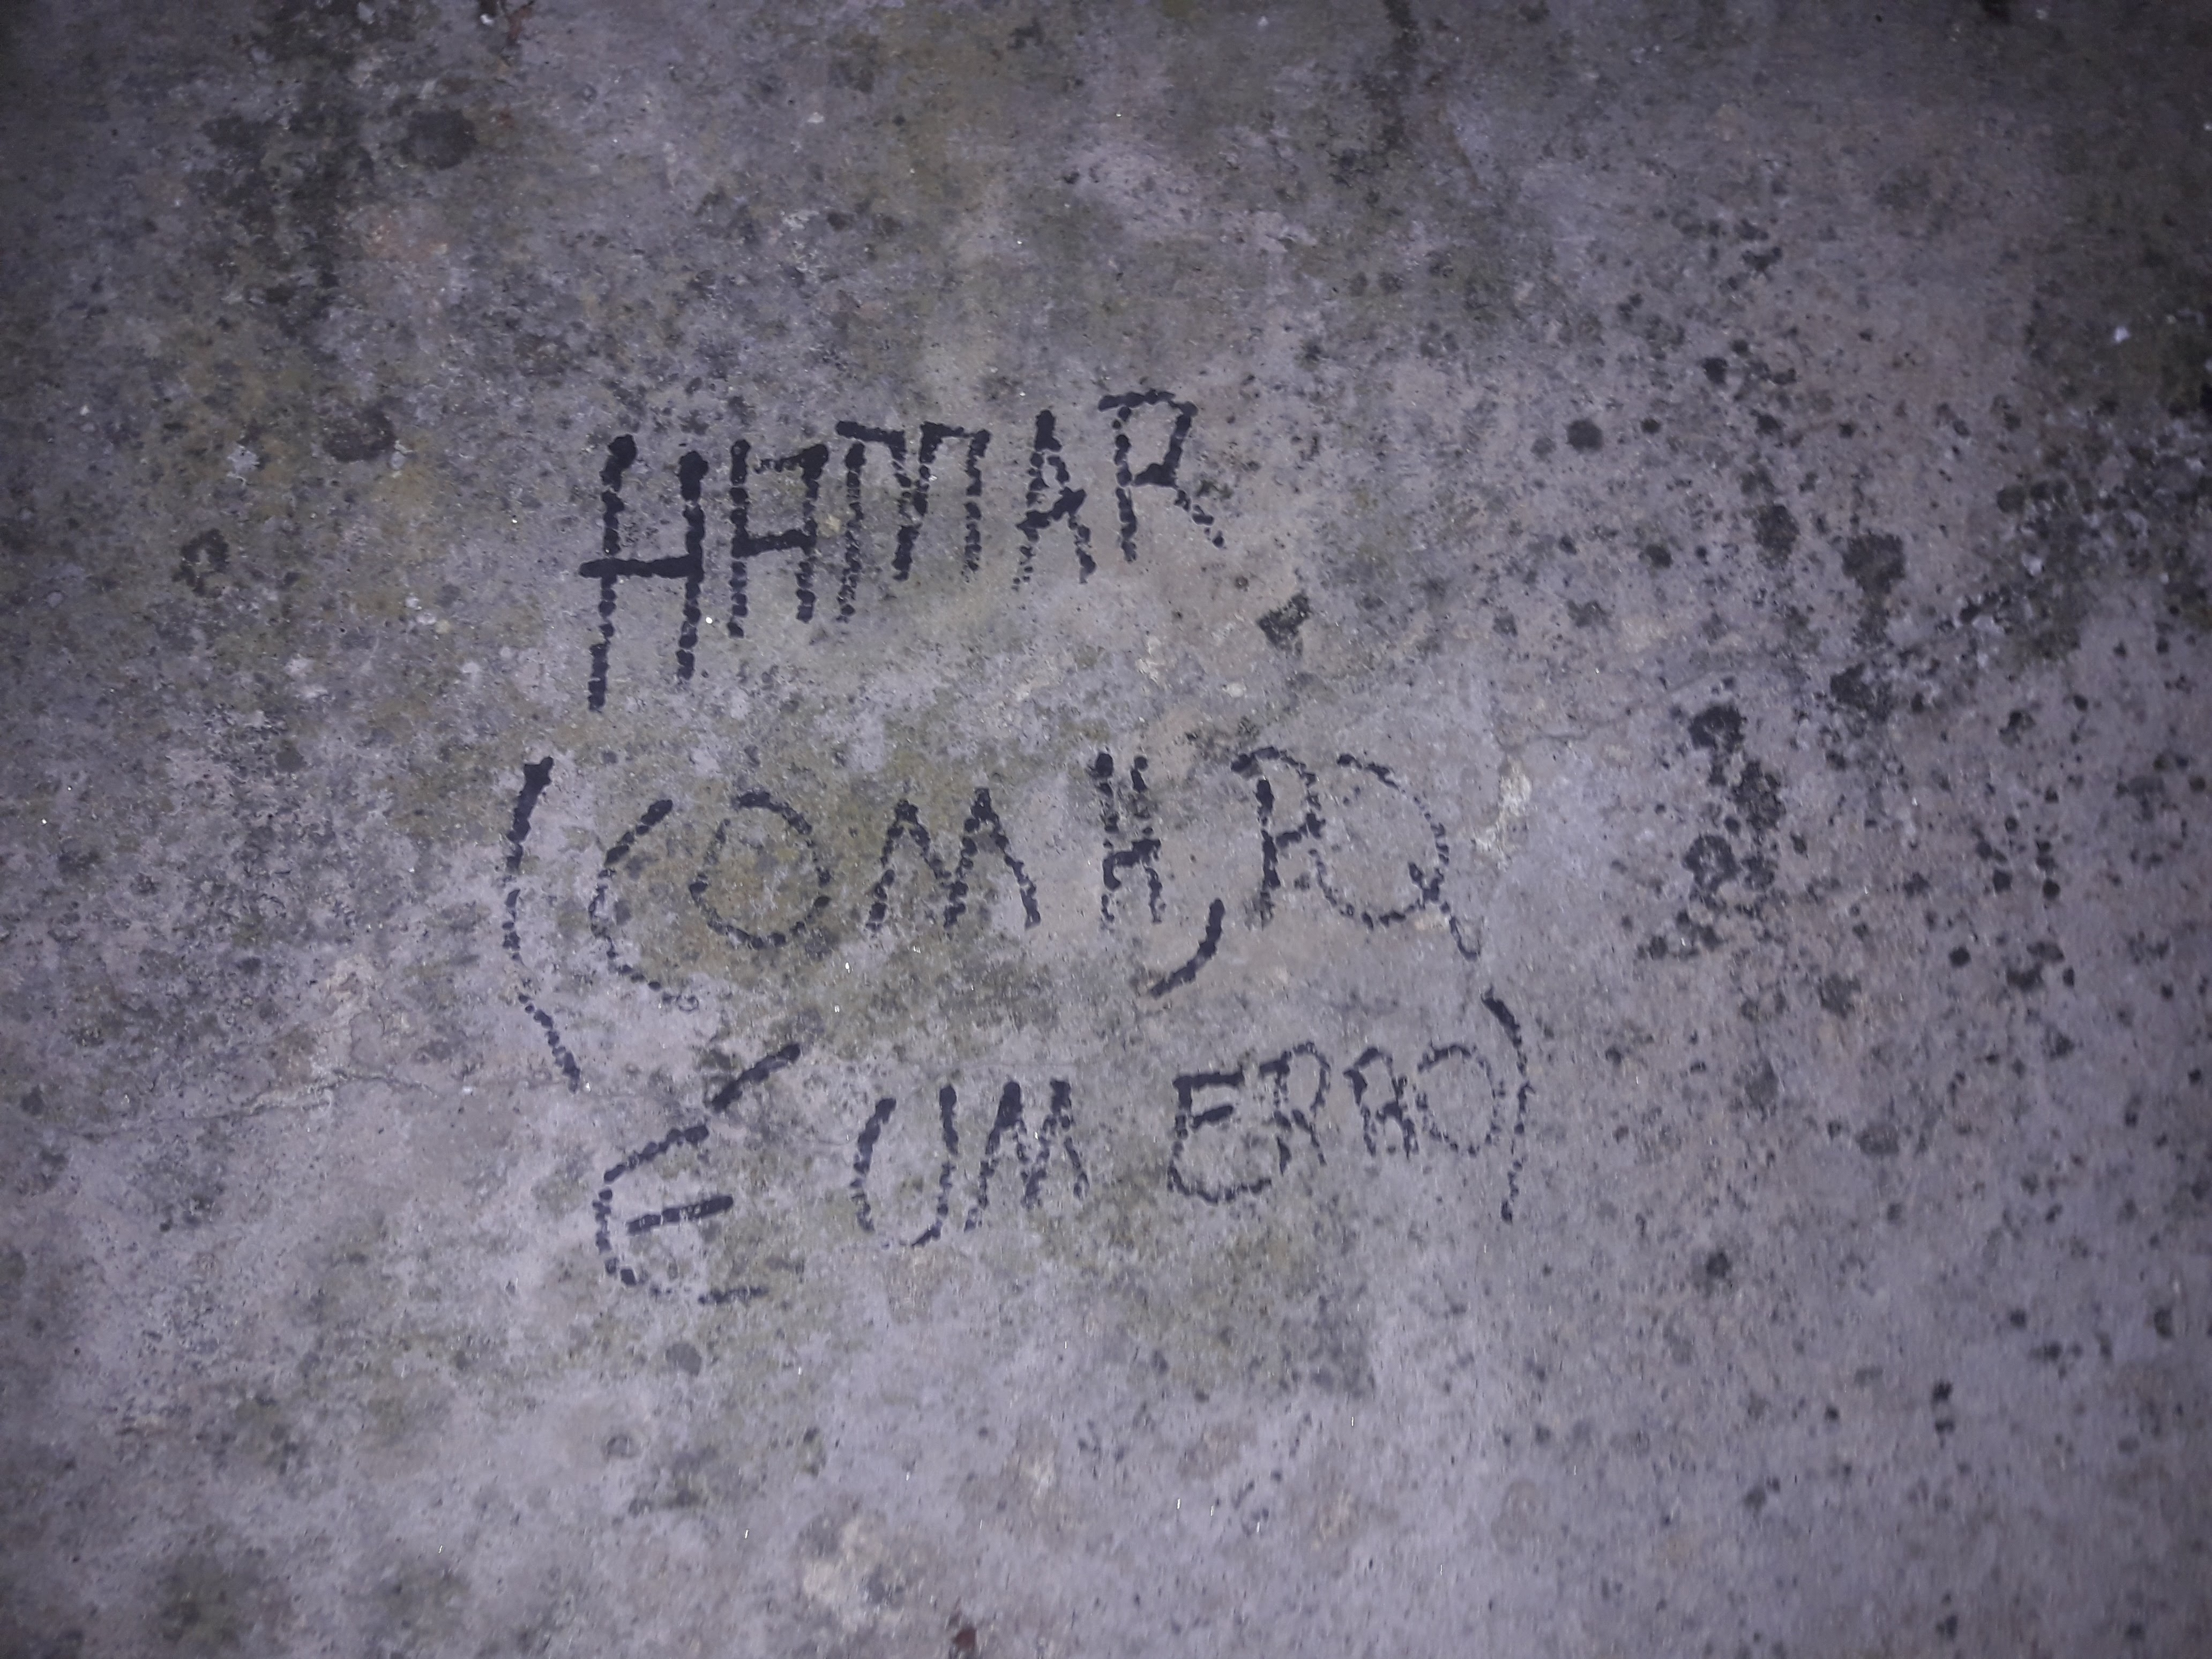 HAMAR
(COM H, PQ
É UM ERRO)